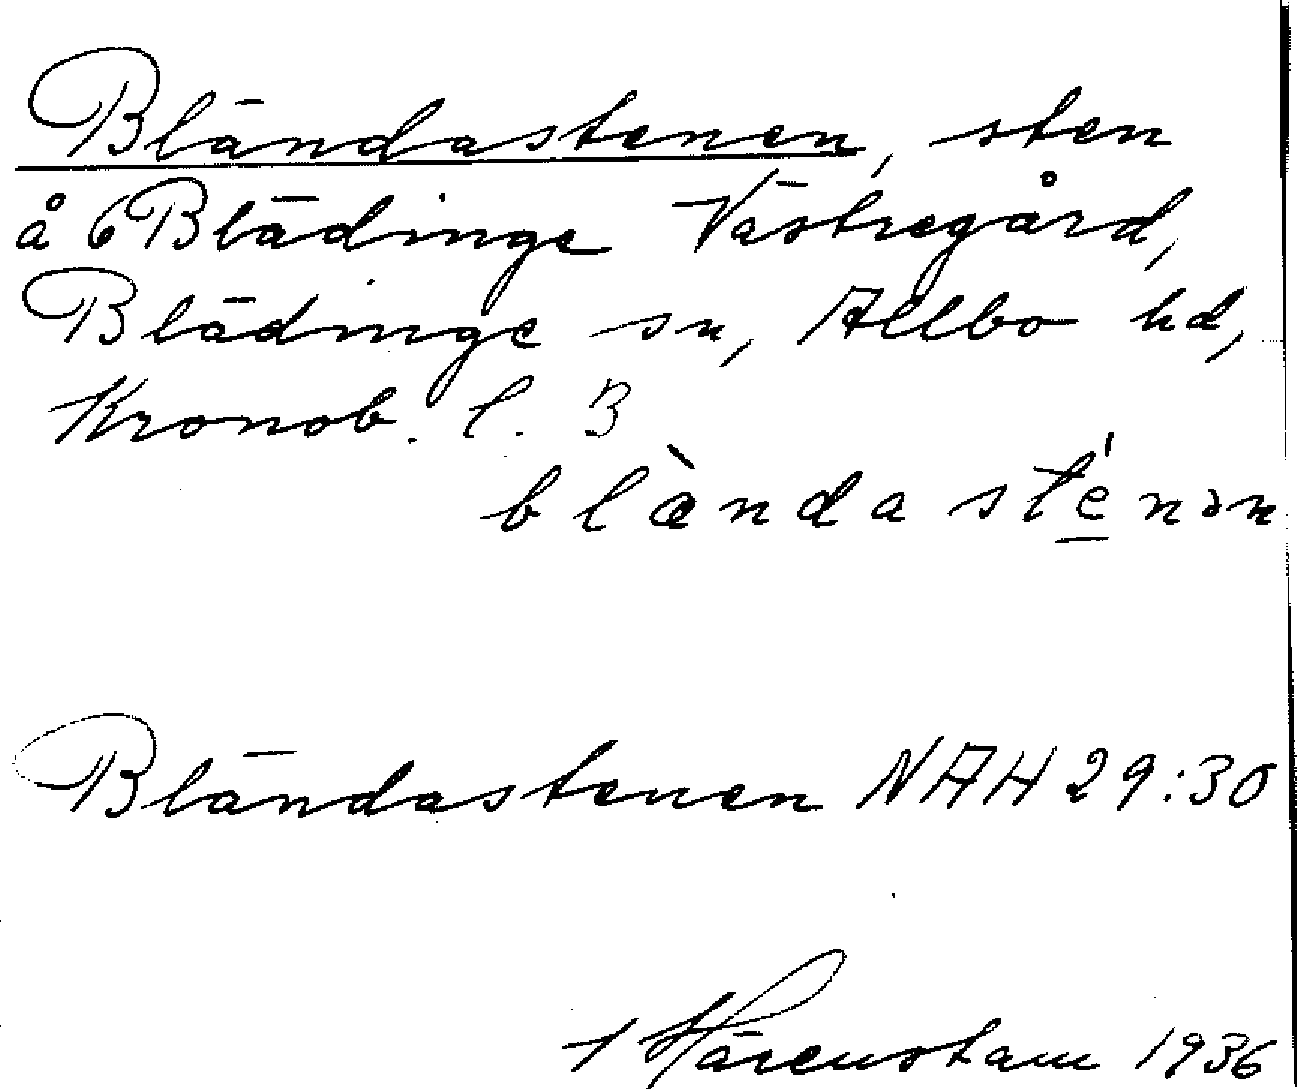 Bländastenen, sten
å 6 Blädinge Västregård,
Blädinge sn, Allbo hd,
Kronob. l. B
blàndasté̱nən
Bländastenen NAH 29:30
Härenstam 1936